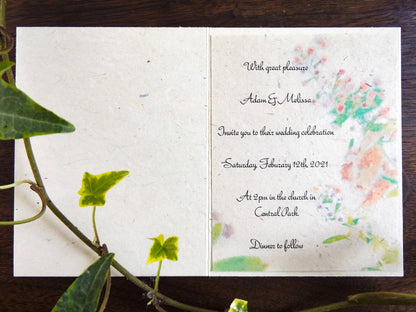 With great pleasure
Adam & Melissa
Invite you to their wedding celebration
Saturday, Feburary 12th, 2021
At 2pm in the church in
Central Park
Dinner to follow